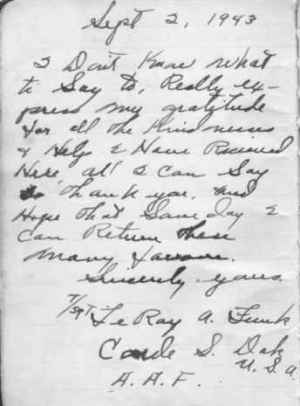 Sept 2, 1943
I Dont Know what
to Say to, Really ex-
press my gratitude
for all the Kindnesses
& Help I Have Received
Here, all I can Say
is thank you. and
Hope that Some day I
can Return these
many favors.
Sincerely yours
T/Sgt LeRoy A. Funk
Conde S. Dak
U.S.A.
A.A.F.